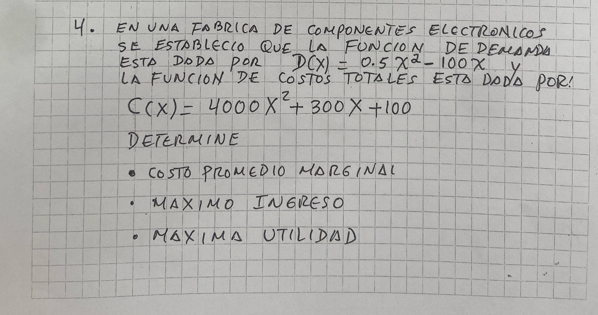 4. EN UNA FABRICA DE COMPONENTES ELECTRONICOS
SE ESTABLECIO QUE LA FUNCION DE DEMANDA
ESTA DADA POR D(X) = 0.5X² - 100X Y
LA FUNCION DE COSTOS TOTALES ESTA DADA POR:
C(X) = 4000X² + 300X + 100
DETERMINE
• COSTO PROMEDIO MARGINAL
• MAXIMO INGRESO
• MAXIMA UTILIDAD